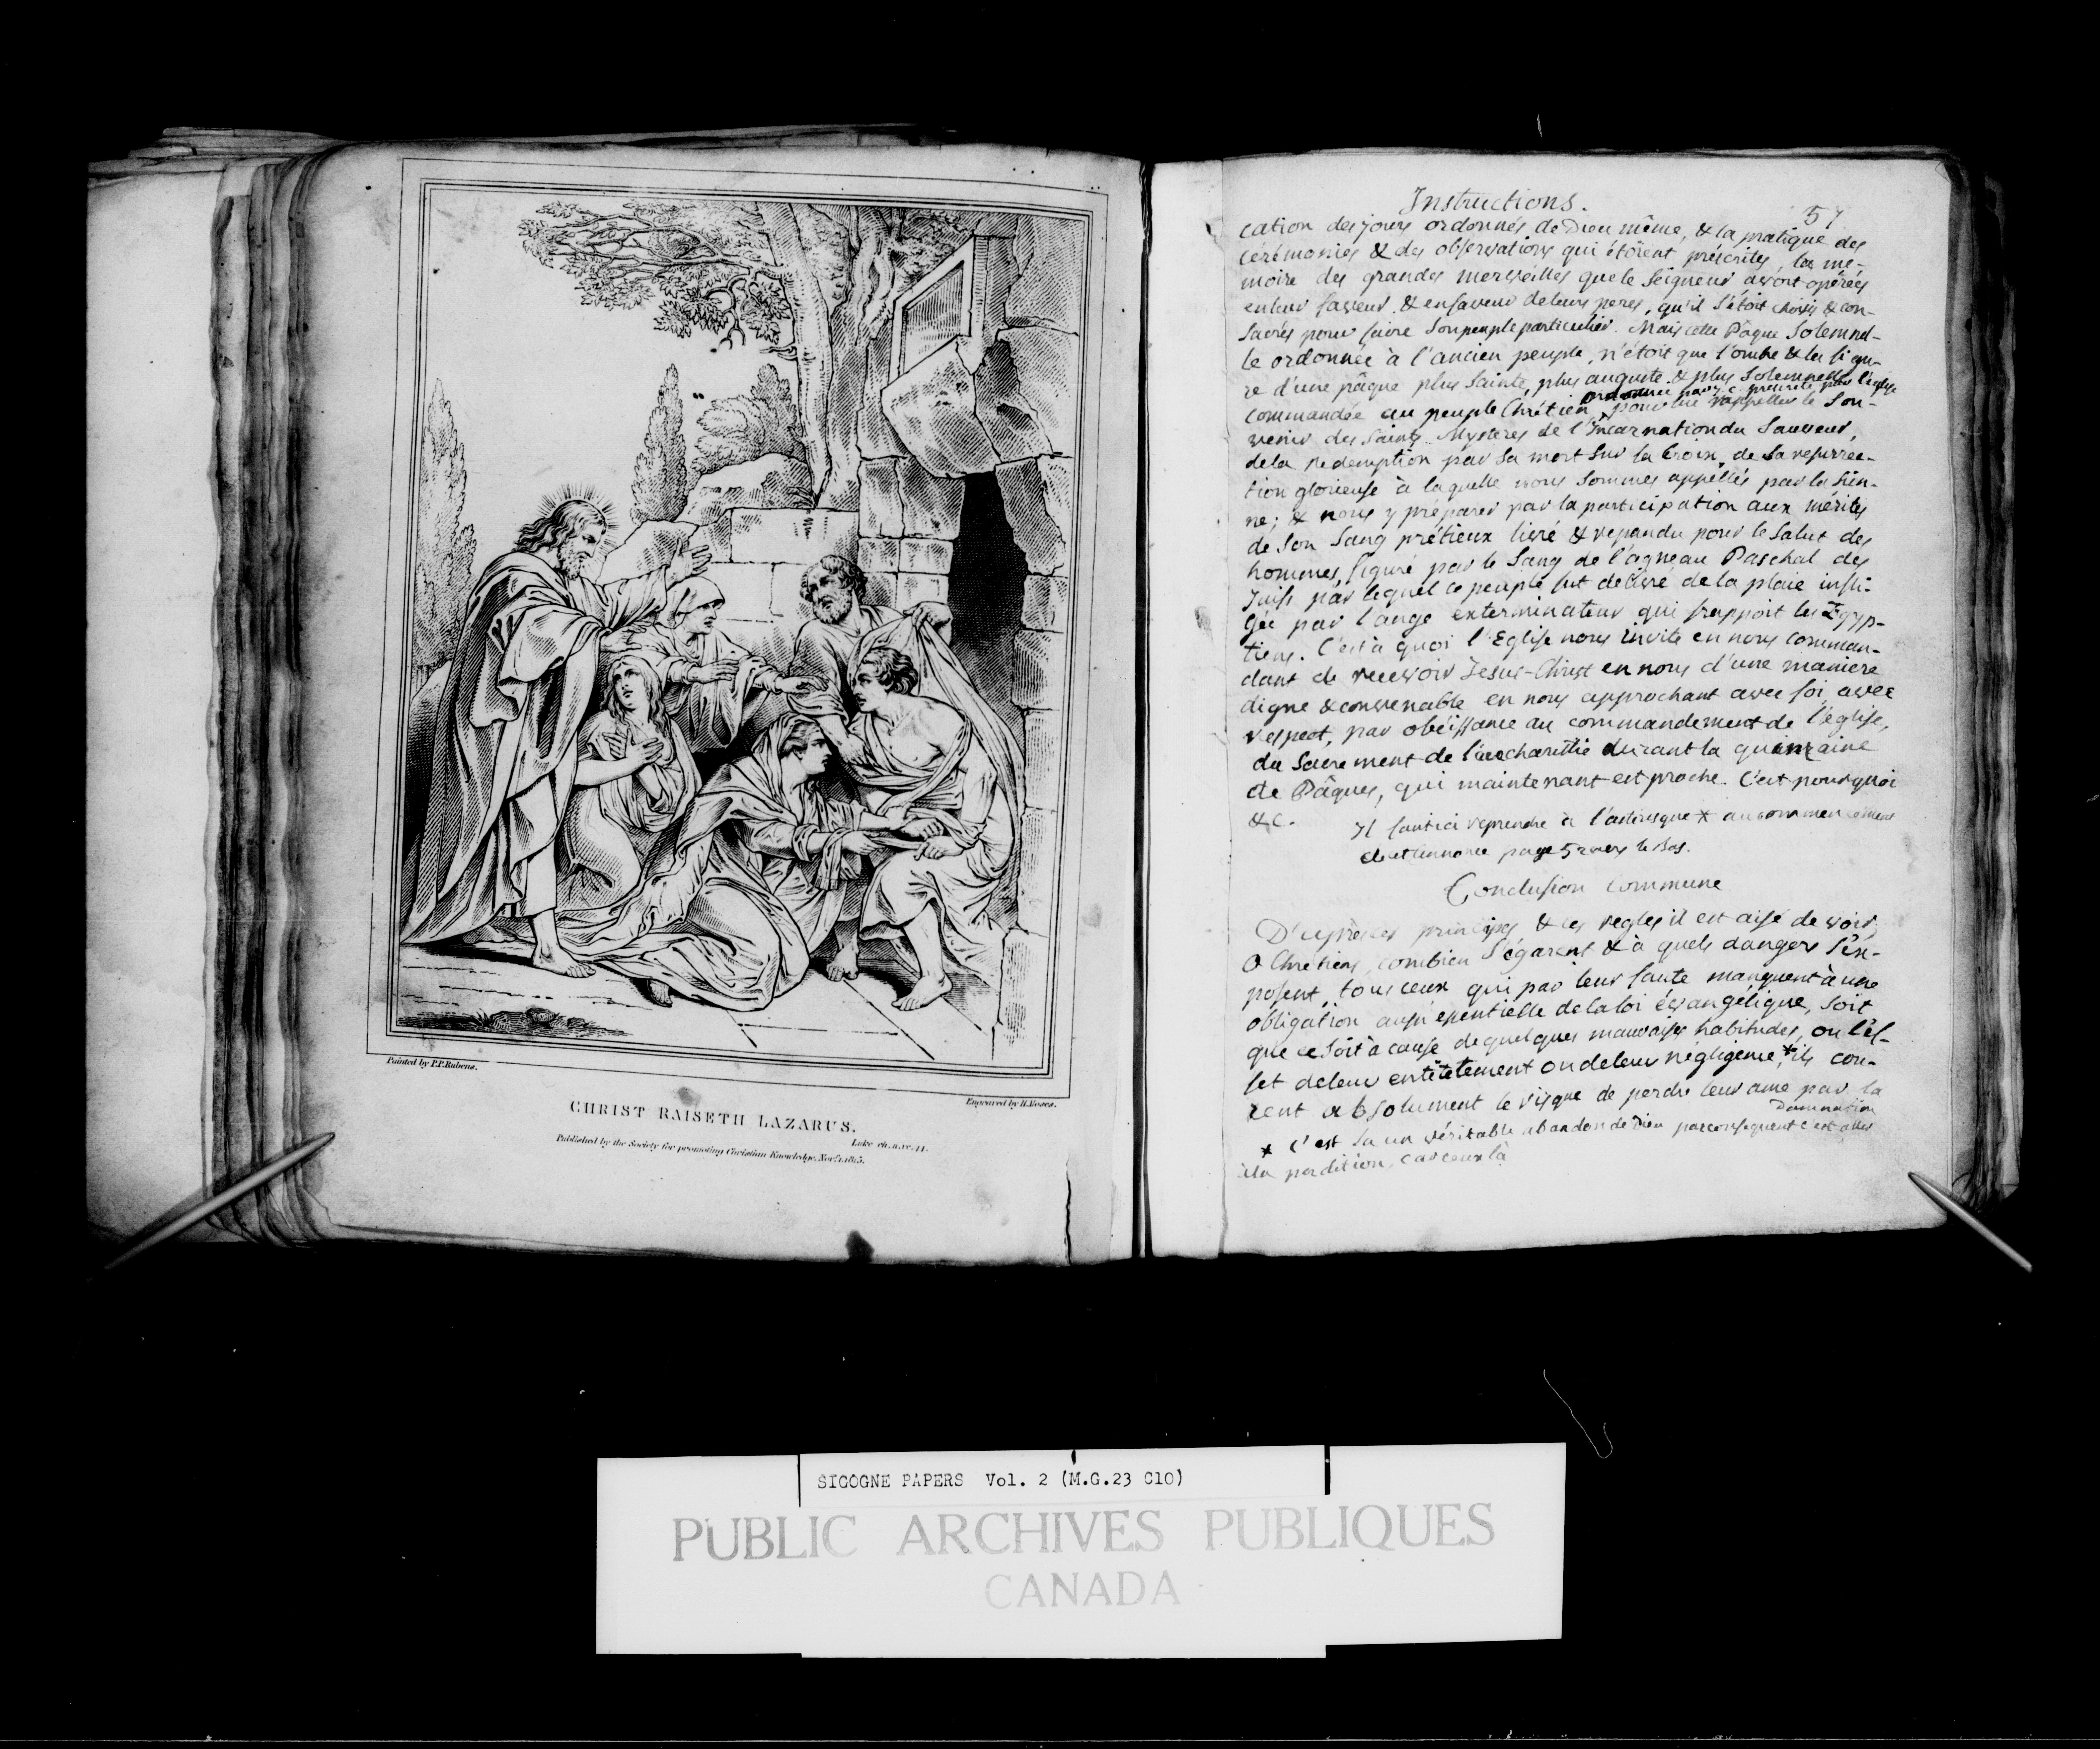 Painted by P.P.Rubens.
Engraved by H.Moses.
CHRIST RAISETH LAZARUS.
Luke ch.11.ve.44.
Published by the Society for promoting Christian Knowledge, Nov.1.1815.
Instructions.
57
cation des jours ordonnés de Dieu même, & la pratique des
cérémonies & des observations qui étoient préscrites, la mé-
moire des grandes merveilles que le Seigneur avoit opérées
en leur faveur & en faveur de leurs peres, qu'il s'étoit choisis & con-
sacrés pour faire son peuple particulier. Mais cette Pâque Solemnel-
le ordonnée à l'ancien peuple, n'étoit que l'ombre & la figu-
re d'une pâque plus Sainte, plus auguste & plus Solemnelle
par l'église
commandée au peuple Chrétien pour lui rappeller le Sou-
venir des Saints Mysteres de l'Incarnation du Sauveur,
de la redemption par Sa mort Sur la Croix, de Sa resurrec-
tion glorieuse à laquelle nous Sommes appellés par la Sien-
ne; & nous y préparer par la participation aux mérites
de Son Sang prétieux livré & repandu pour le Salut des
hommes, figuré par le Sang de l'agneau Paschal des
Juifs par lequel ce peuple fut delivré de la plaie infli-
gée par l'ange exterminateur qui frappoit les Egyp-
tiens. C'est à quoi l'Eglise nous invite en nous comman-
dant de recevoir Jesus-Christ en nous d'une maniere
digne & convenable en nous approchant avec foi, avec
respect, par obéissance au commandement de l'église,
du Sacrement de l'eucharistie durant la quinzaine
de Pâques, qui maintenant est proche. C'est pourquoi
&c.
Il faut ici reprendre à l'astérisque * au commencement
de cet annonce page 52 vers le Bas.
Conclusion Commune
D'après ces principes & ces regles il est aisé de voir,
O Chretiens, combien S'égarent & à quels dangers S'ex-
posent tous ceux qui par leur faute manquent à une
obligation aussi essentielle de la loi évangélique, Soit
que ce Soit à cause de quelques mauvaises habitudes, ou l'ef-
fet de leur entêtetement ou de leur négligence,* ils cou-
rent absolument le risque de perdre leur ame par la
Damnation
* C'est là un véritable abandon de Dieu par conséquent c'est aller
à la perdition, car ceux là
SIGOGNE PAPERS Vol. 2 (M.G.23 C10)
PUBLIC ARCHIVES PUBLIQUES
CANADA